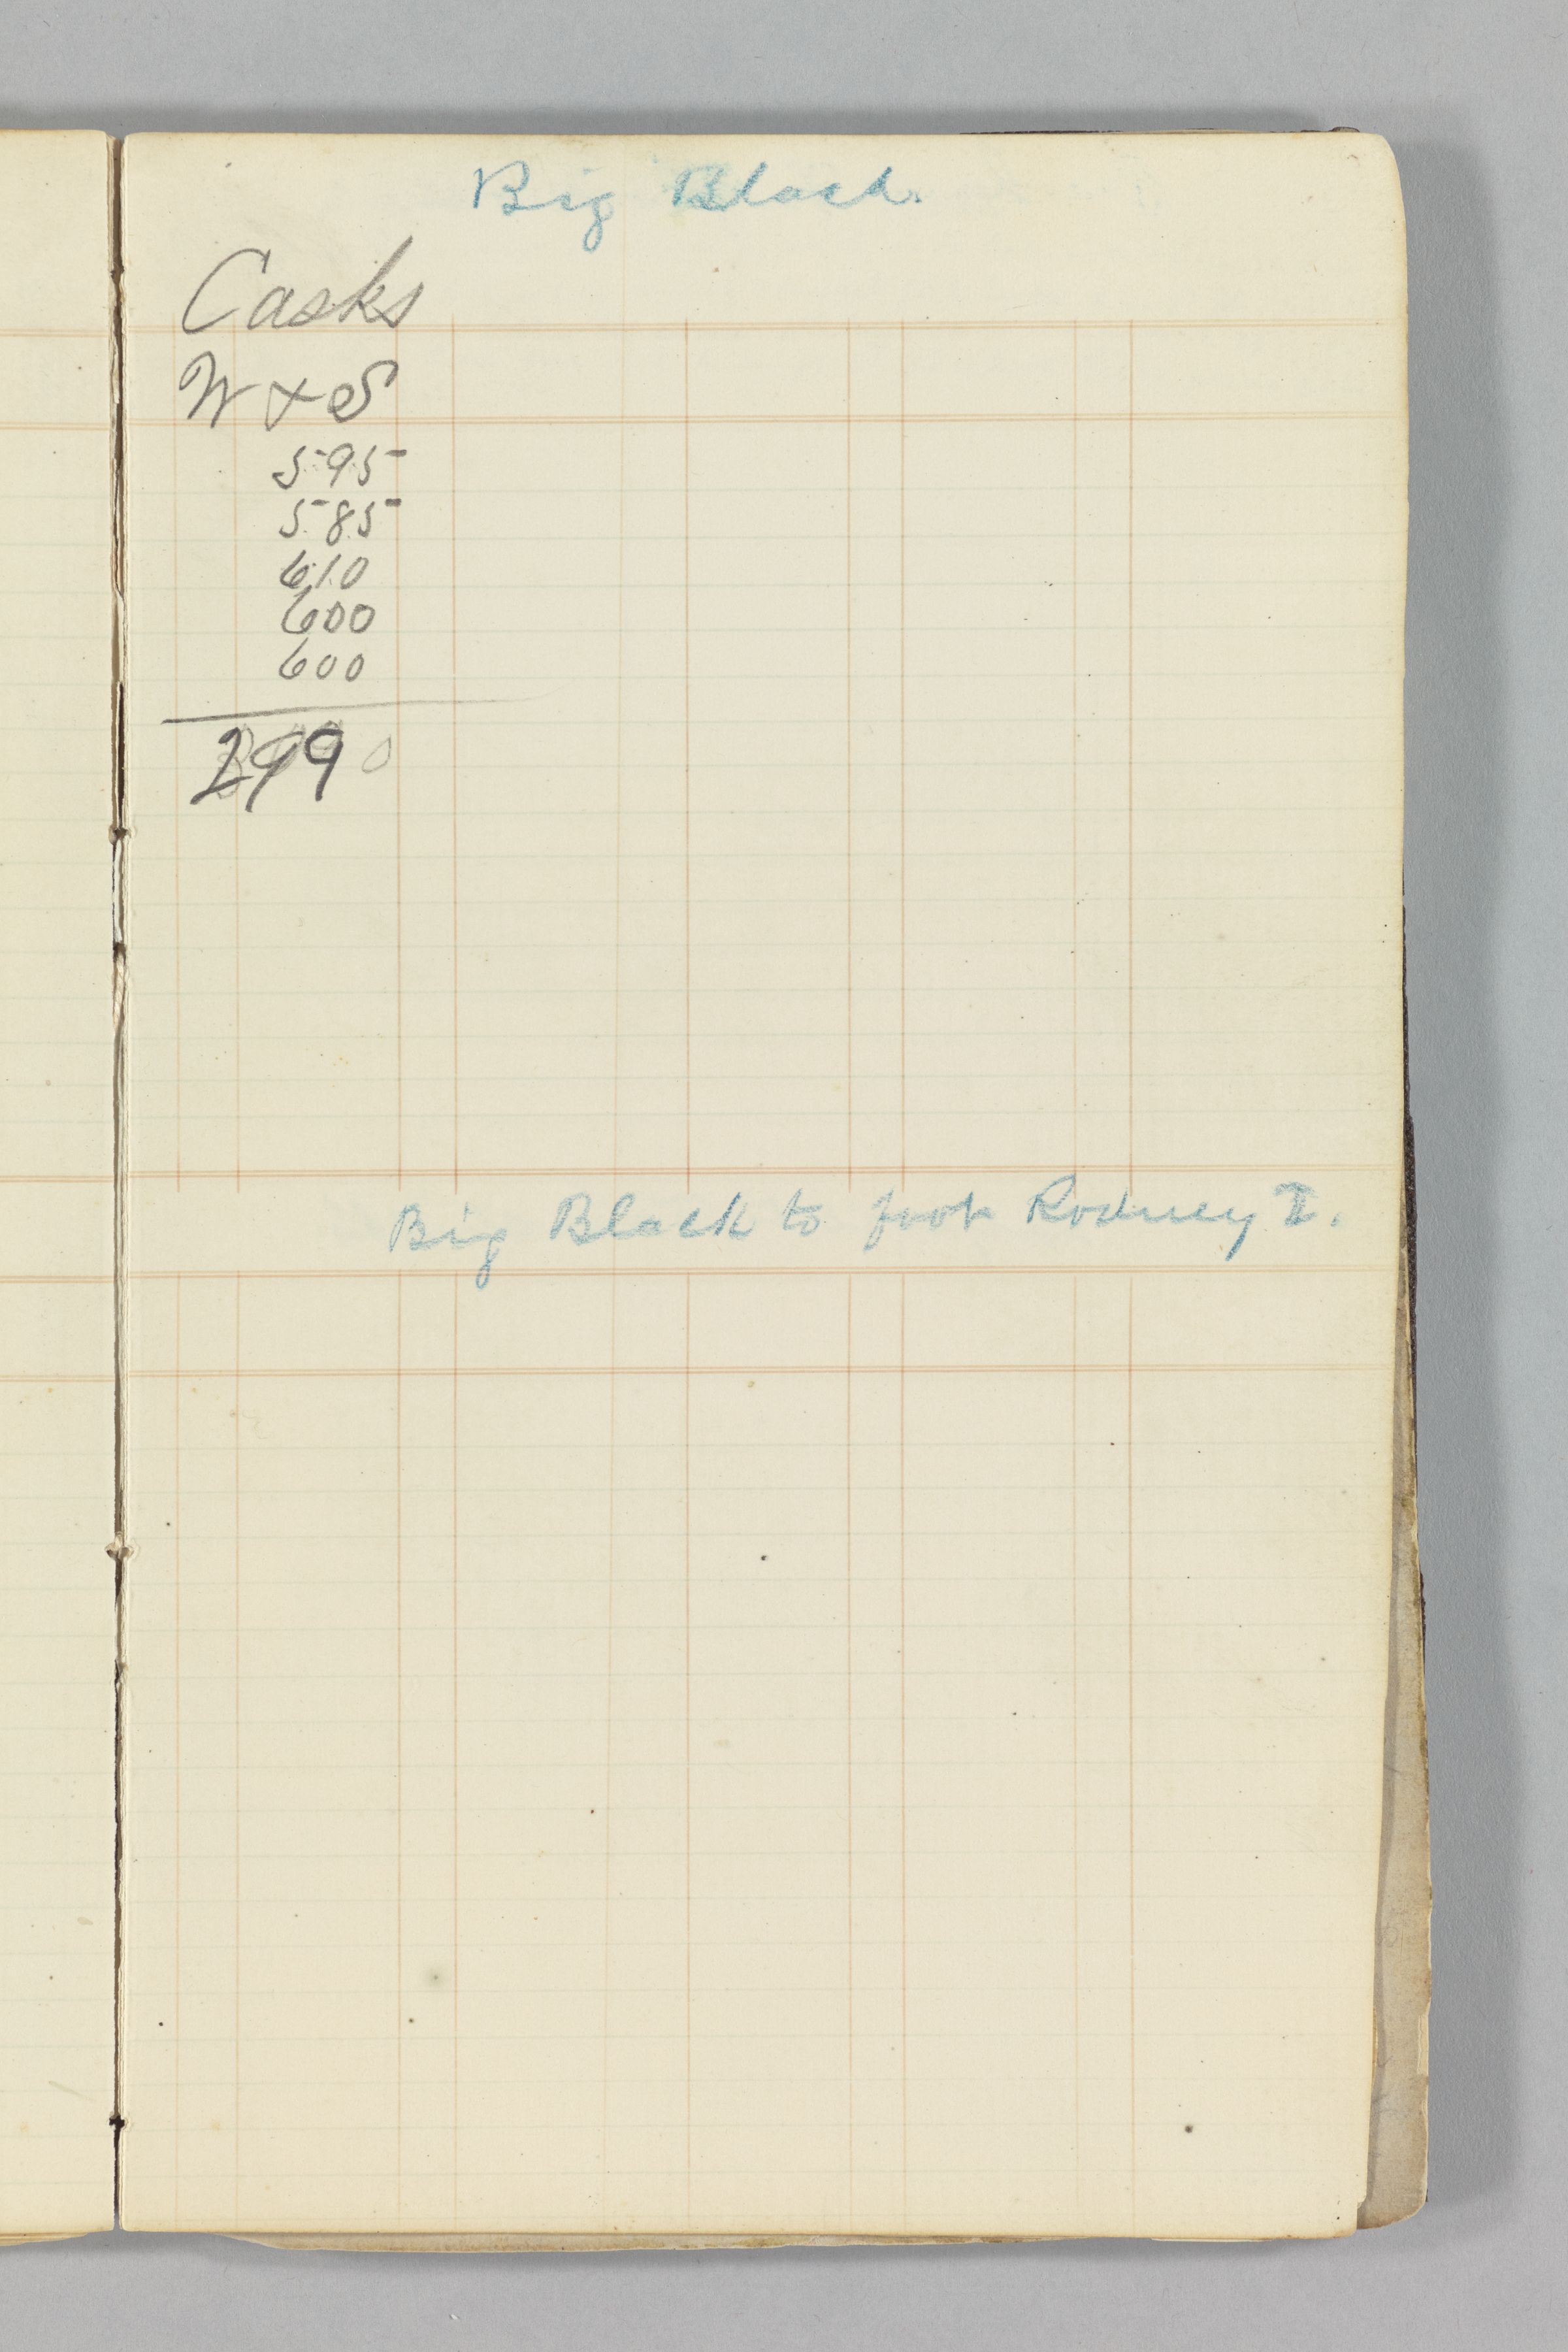 Big Black.
Casks
W + S
595
585
610
600
600
2990
Big Black to foot Rodney I.